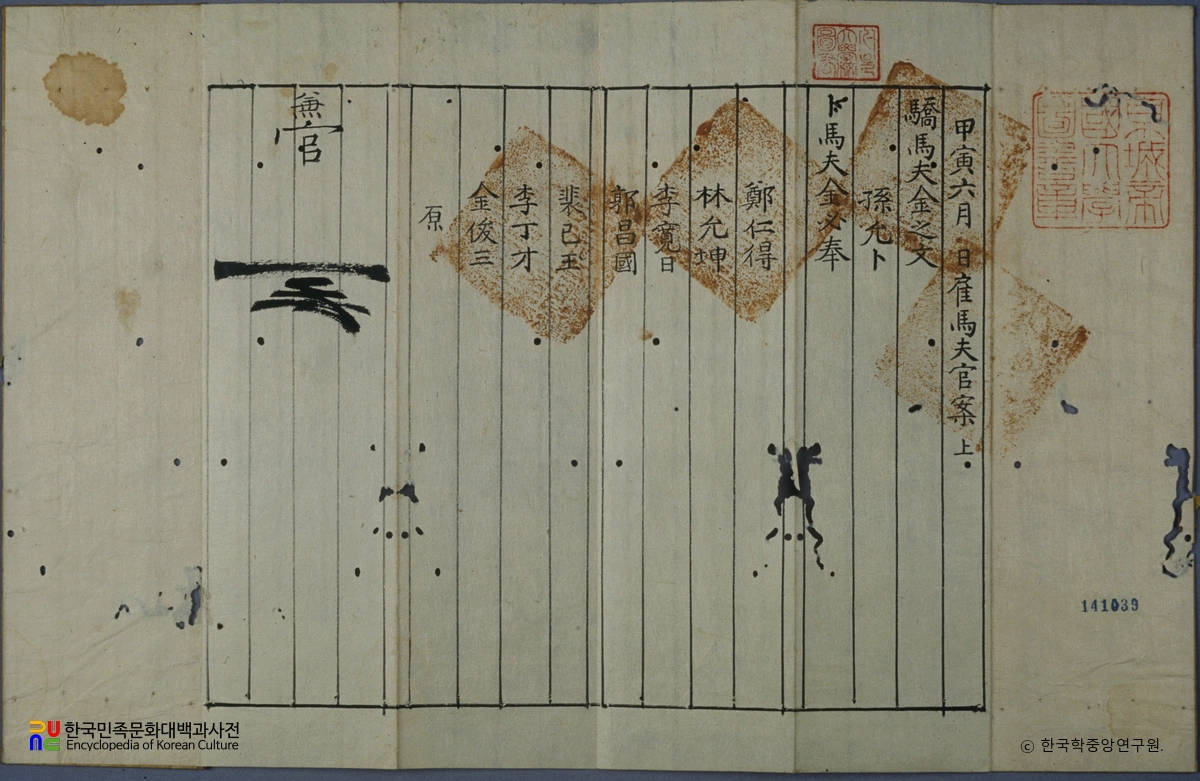 甲寅六月 日雇馬夫官案 上
驕馬夫金之文
孫允卜
卜馬夫金必奉
鄭仁得
林允坤
李寬日
郭昌國
裴己玉
李丁才
金俊三
原
兼官
京城帝
國大學
圖書章
141039
한국민족문화대백과사전
Encyclopedia of Korean Culture
© 한국학중앙연구원.